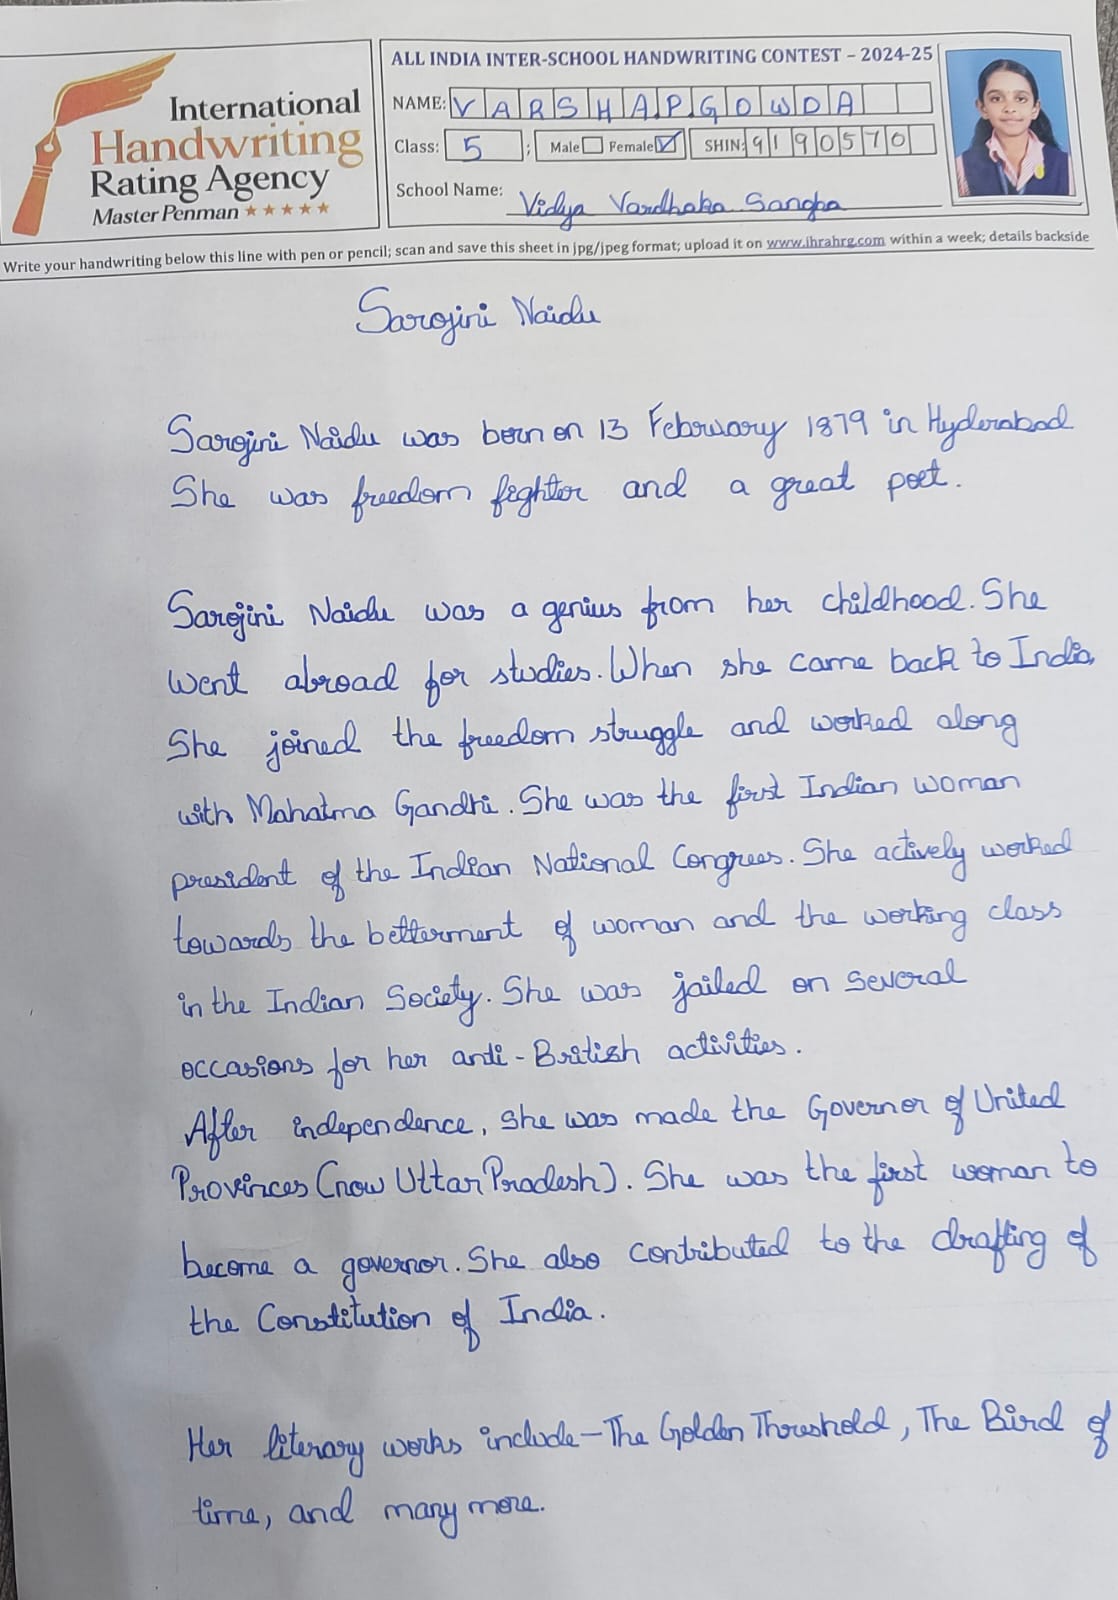 International
Handwriting
Rating Agency
Master Penman ★★★★★
ALL INDIA INTER-SCHOOL HANDWRITING CONTEST – 2024-25
NAME: VARSHA.P.GOWDA
Class: 5 ; Male Female ✓ SHIN: 9190570
School Name: Vidya Vardhaka Sangha
Write your handwriting below this line with pen or pencil; scan and save this sheet in jpg/jpeg format; upload it on www.ihrahrg.com within a week; details backside
Sarojini Naidu
Sarojini Naidu was born on 13 February 1879 in Hyderabad
She was freedom fighter and a great poet.
Sarojini Naidu was a genius from her childhood. She
went abroad for studies. When she came back to India,
She joined the freedom struggle and worked along
with Mahatma Gandhi. She was the first Indian woman
president of the Indian National Congress. She actively worked
towards the betterment of woman and the working class
in the Indian Society. She was jailed on several
occasions for her anti-British activities.
After independence, she was made the Governor of United
Provinces (now Uttar Pradesh). She was the first woman to
become a governor. She also contributed to the drafting of
the Constitution of India.
Her literary works include – The Golden Threshold, The Bird of
time, and many more.